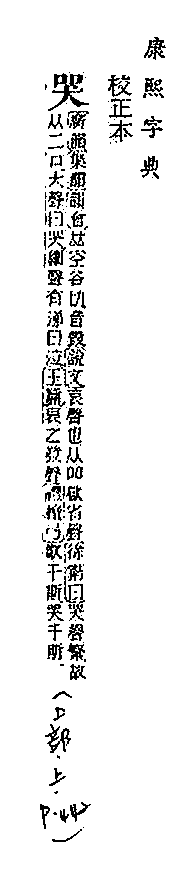 康熙字典
校正本
哭
廣韻集韻韻會𠀤空谷切音㲄說文哀聲也从吅獄省聲徐鍇曰哭聲繁故
从二口大聲曰哭細聲有涕曰泣玉篇哀之發聲禮檀弓歌于斯哭于斯
(口部・上・
P.442)